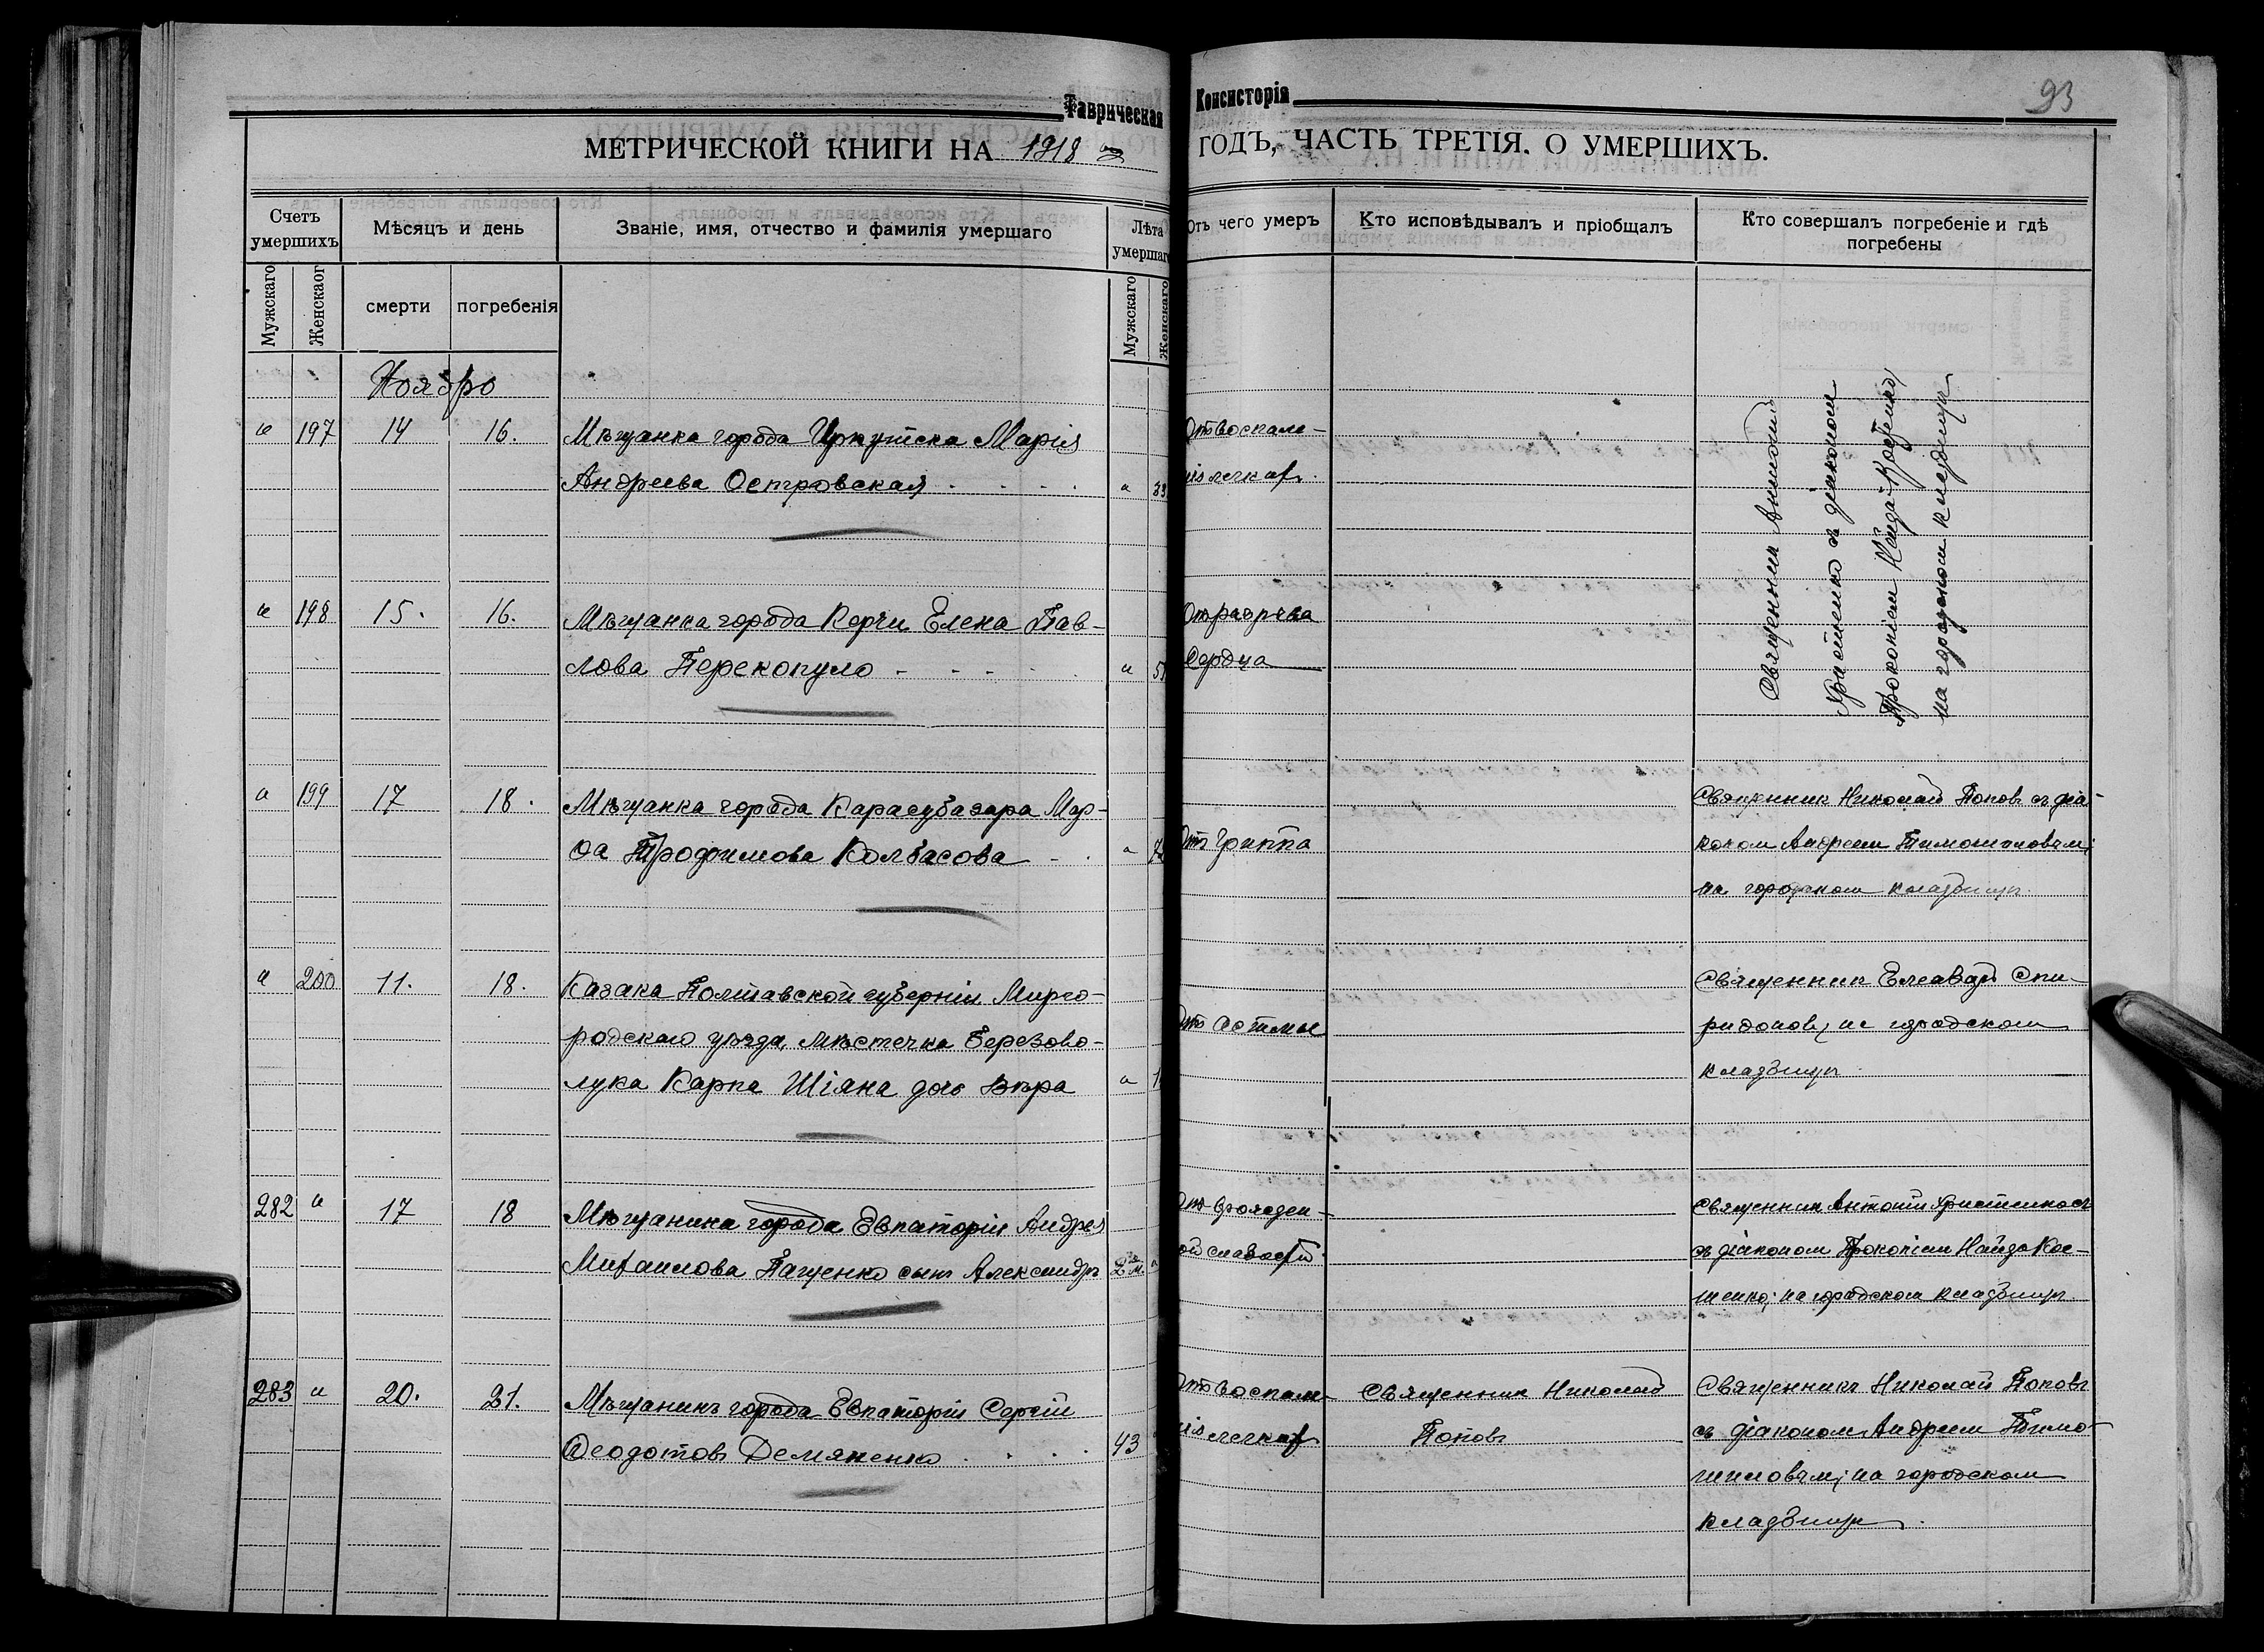 Таврическая Консисторія
93
МЕТРИЧЕСКОЙ КНИГИ НА 1918 ГОДЪ, ЧАСТЬ ТРЕТІЯ. О УМЕРШИХЪ.
Счетъ умершихъ
Мѣсяцъ и день
Званіе, имя, отчество и фамилія умершаго
Лѣта умершаго
Отъ чего умеръ
Кто исповѣдывалъ и пріобщалъ
Кто совершалъ погребеніе и гдѣ
погребены
Мужскаго
Женскаог
смерти
погребенія
Мужскаго
Женскаго
Ноябрь
и 197 14 16. Мѣщанка города Иркутска Марія
Андреева Островская и 33
Отъ воспале-
нія легкихъ.
Священник Антоній
Христенко съ діакономъ
Прокопіем Найда-
на городском кладбищѣ
и 198 15. 16. Мѣщанка города Керчи Елена Пав-
лова Перекопуло и
Отъ разрыва
Сердца
и 199 17 18. Мѣщанка города Карасубазара Мар-
ѳа Трофимова Колбасова
Отъ Гриппа
Священник Николай Поповъ съ діа-
коном Андреем Тимошиловым;
на городском кладбищѣ.
и 200 11. 18. Казака Полтавской губерніи Мирго-
родскаго уѣзда, мѣстечка Березово-
лука Карпа Шіяна дочь Вѣра и
Отъ Астмы
Священник Елеавар Спи-
ридонов, на городском
кладбищѣ
282 и 17 18 Мѣщанина города Евпаторіи Андрея
Михаилова Пащенко сынъ Александръ 2 м. и
Отъ врожден-
ой слабости.
Священник Антоній Христенко съ
съ діаконом Прокопіем Найда Кос-
тенко; на городском кладбищѣ.
283 и 20. 21. Мѣщанинъ города Евпаторіи Сергій
Ѳеодотовъ Демяненко 43
Отъ воспале-
нія легкихъ
Священник Николай
Поповъ
Священникъ Николай Поповъ
съ діаконом Андреем Тимо-
шиловым; на городском
кладбищѣ.